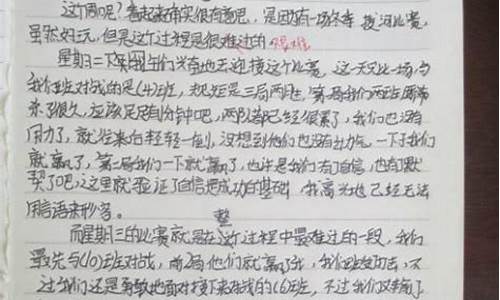 这个周呢?看起来确实很有意思,是因为有一场冬季拔河比赛,
虽然好玩,但是这个过程是很难过的 很难
星期二下午同学们兴奋地去迎接这个比赛,这一天只比一场与
我们班对战的是(4)班,规定是三局两胜,第一局我们两班
来了很久,应该足足有1分钟吧,两队都已经很累了,我们也没有
用力了,就
就赢了,第二局我们一下就赢了,也许是我们有了自信,也有了默
契了吧,这里就验证了自信是成功的基础,我高兴地已经无法
用言语来形容。
整
而星期三的比赛就是在这个过程中最难过的一段,我们
最先与(10)班对战,前2局他们就赢了我,我们
过我们还是勇敢地面对接下来对战的(6)班,不过我们又输了